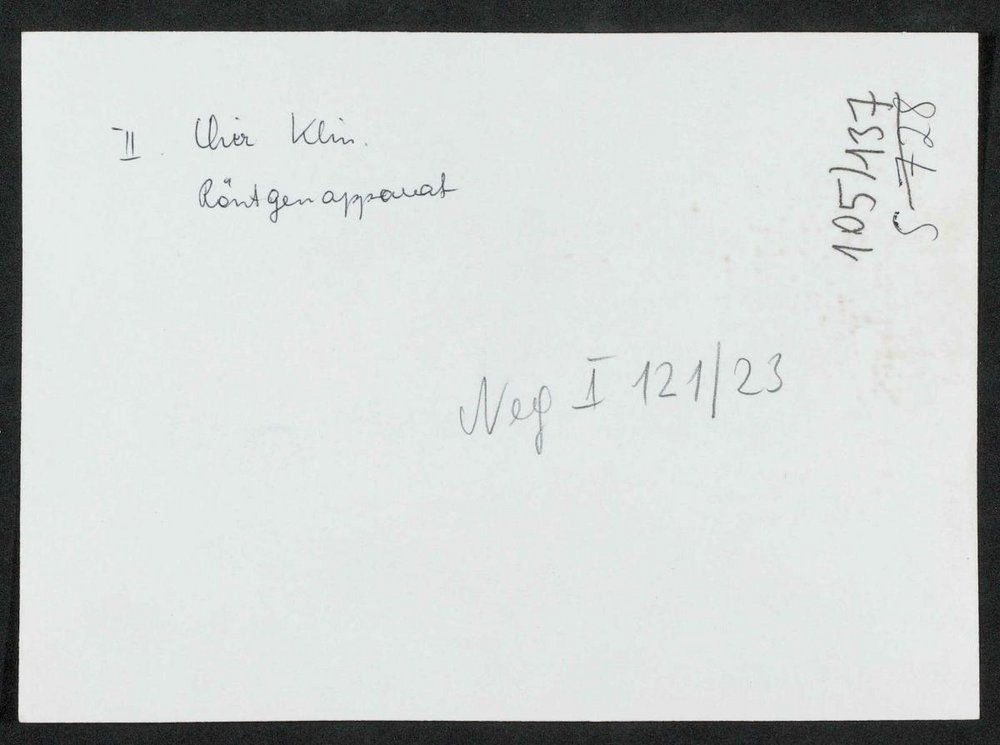 II. Chir Klin.
Röntgenapparat
105/137
S-728
Neg I 121/23